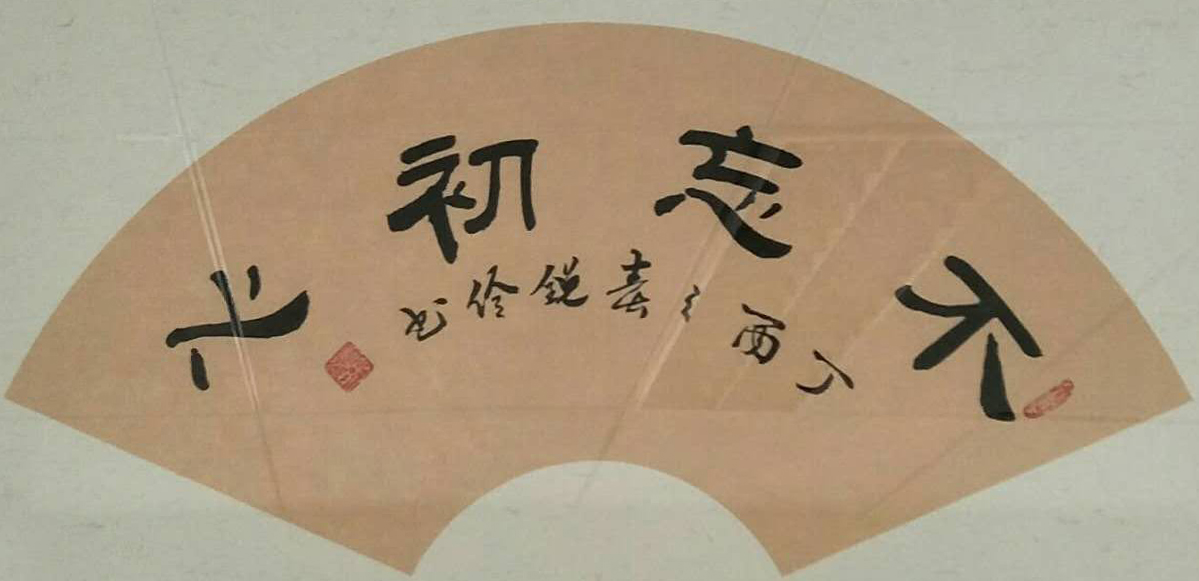 不忘初心
丁酉之春锐伶书